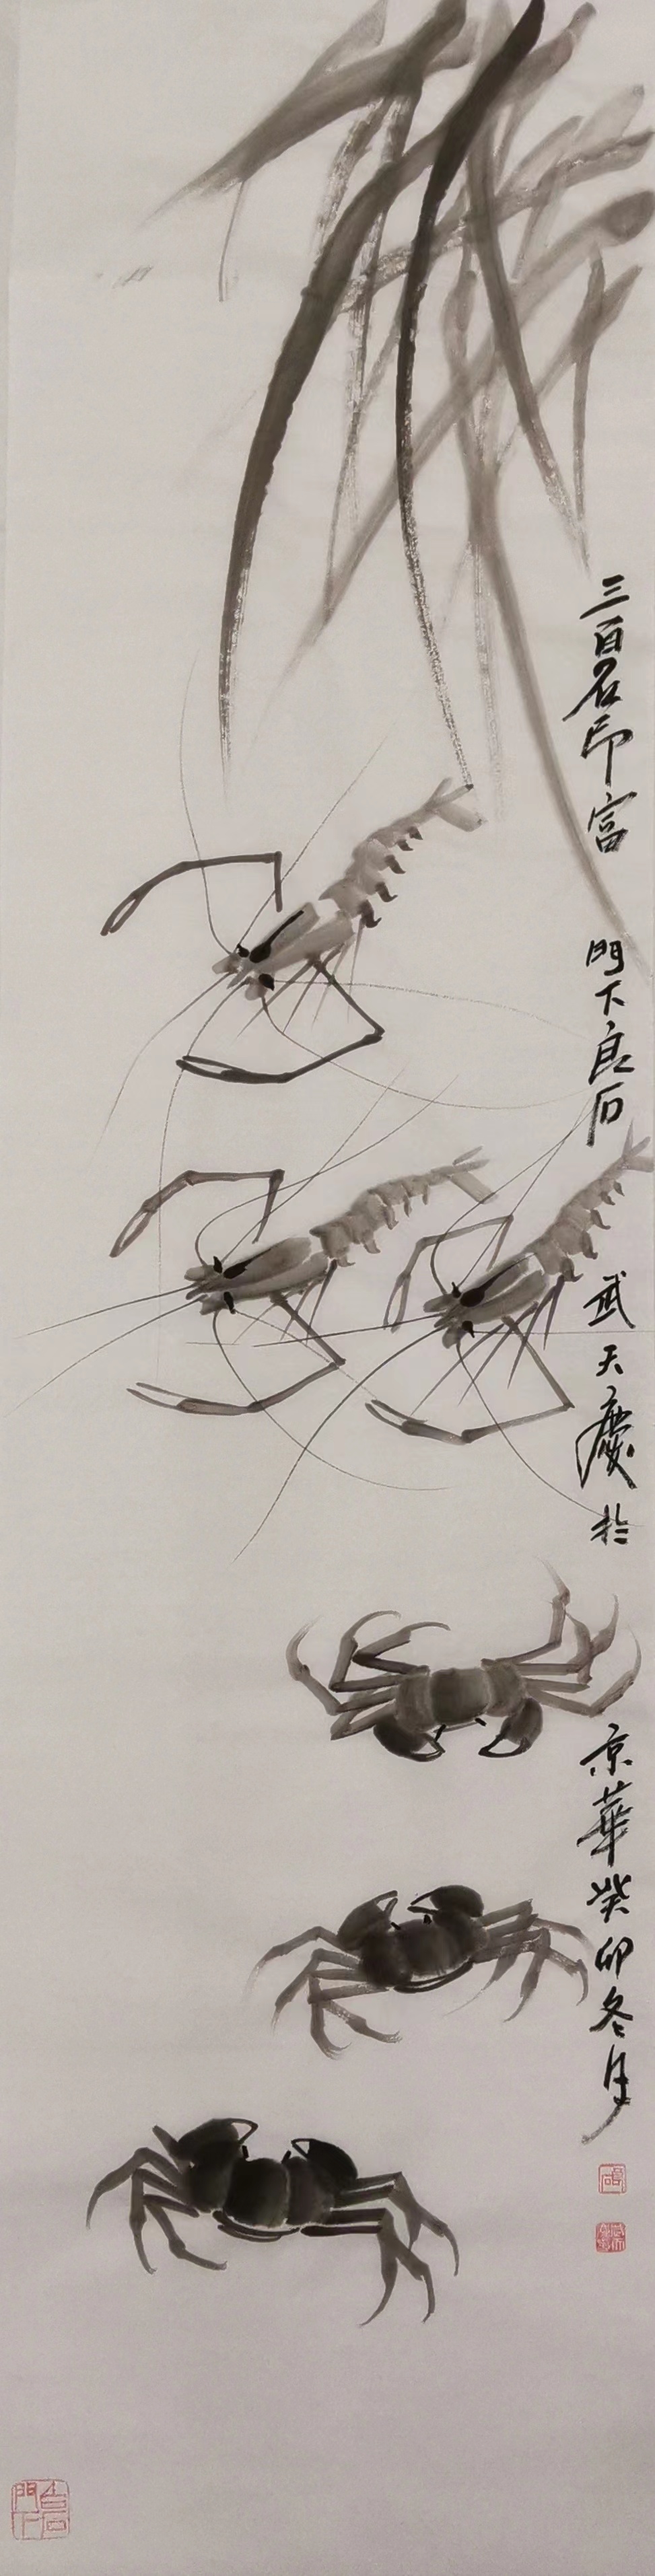 三百石印富 門下良石 武天慶於 京華癸卯冬月